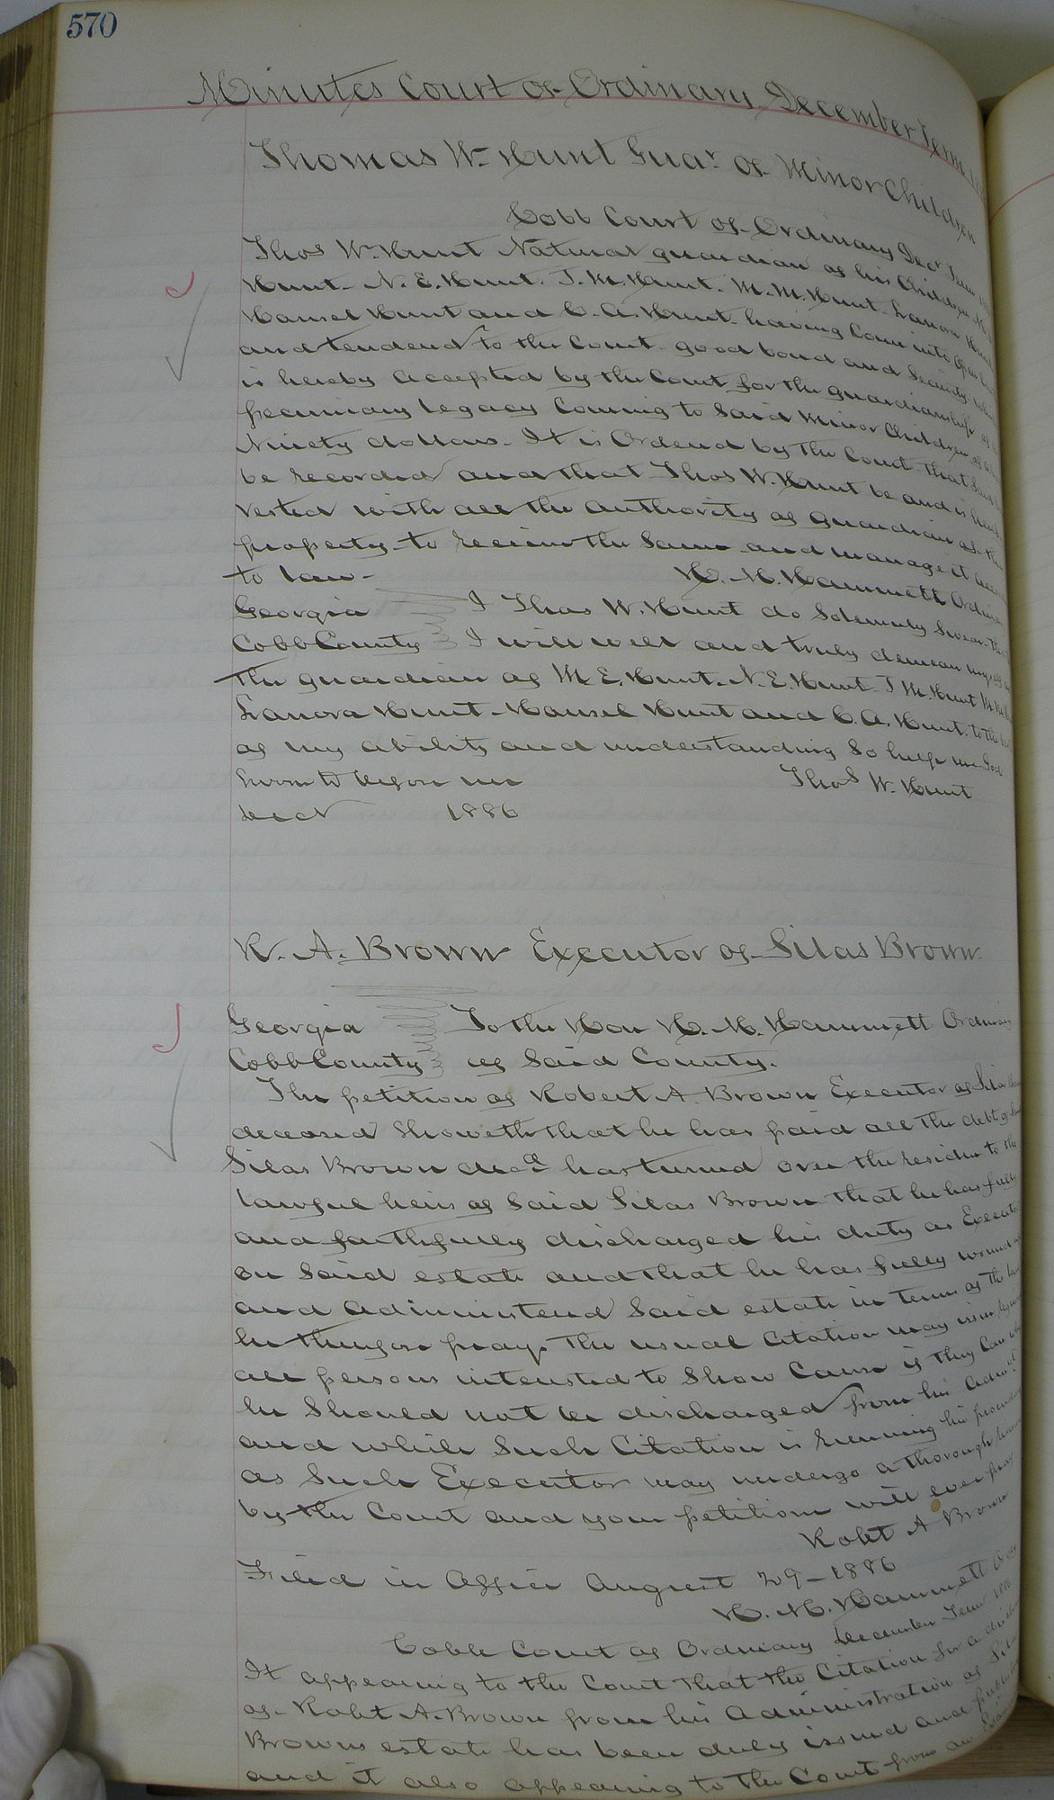 570
Minutes Court of Ordinary December Term
Thomas W. Hunt Guar of Minor Children
Cobb Court of Ordinary Decr Term
Thos W. Hunt Natural guardian of his Children
Hunt. N. E. Hunt. T. M. Hunt. M. M. Hunt. Lanora Hunt
Hansel Hunt and C. A. Hunt. having Come into Open
and tendered to the Court good bond and Security
is hereby accepted by the Court for the guardianship of
pecuniary legacy Coming to Said Minor Children of
Ninety dollars. It is Ordered by the Court that Said
be recorded and that Thos W. Hunt be and is hereby
vested with all the authority of guardian of
property to receive the Same and manage it
to law. H. M. Hammett Ordinary
Georgia I Thos W. Hunt do Solemnly Swear
Cobb County I will well and truly demean myself as
the guardian of M. E. Hunt. N. E. Hunt. T. M. Hunt
Lanora Hunt. Hansel Hunt and C. A. Hunt. to the best
of my ability and understanding So help me God
Sworn to before me Thos W. Hunt
Decr 1886
R. A. Brown Executor of Silas Brown
Georgia To the Hon H. M. Hammett Ordinary
Cobb County of Said County.
The petition of Robert A. Brown Executor of Silas
deceased Showeth that he has paid all the debts of
Silas Brown decd has turned over the residue to the
lawful heirs of Said Silas Brown that he has fully
and faithfully discharged his duty as Executor
on Said estate and that he has fully wound
and administered Said estate in terms of the law
he therefore prays the usual Citation may issue
all persons interested to Show Cause if they Can
he Should not be discharged from his
and while Such Citation is running his
as Such Executor may undergo a thorough
by the Court and your petitioner will ever pray
Robt A Brown
Filed in Office August 29-1886
H. M. Hammett Ordy
Cobb Court of Ordinary December Term
It appearing to the Court that the Citation for a
of Robt A. Brown from his Administration of
Browns estate has been duly issued and
and it also appearing to the Court from an